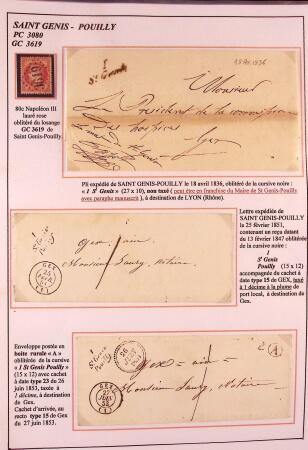 SAINT GENIS - POUILLY
PC 3080
GC 3619
80c Napoléon III
lauré rose
oblitéré du losange
GC 3619 de
Saint Genis-Pouilly.
18 Av. 1836
1
St Genis
Monsieur
Le Président de la commission
des hospices
Gex
Pli expédié de SAINT GENIS-POUILLY le 18 avril 1836, oblitéré de la cursive noire :
« 1 St Genis » (27 x 10), non taxé ( peut être en franchise du Maire de St Genis-Pouilly
avec paraphe manuscrit ), à destination de LYON (Rhône).
Lettre expédiée de
SAINT GENIS-POUILLY
le 25 février 1851,
contenant un reçu datant
de 13 février 1847 oblitérée
de la cursive noire :
1
St Genis
Pouilly (15 x 12)
accompagnée de cachet à
date type 15 de GEX, taxée
à 1 décime à la plume de
port local, à destination
de GEX.
Gex ain
Monsieur Laury, Notaire
GEX
25
FEVR
(1)
Enveloppe postée en
boite rurale « A »
oblitérée de la cursive
« 1 St Genis Pouilly »
(15 x 12) avec cachet à
date type 23 du 26
juin 1853, taxée à
1 décime, à destination
de GEX.
Cachet d'arrivée, au
recto type 15 de Gex
du 27 juin 1853.
A
Gex = ain =
Monsieur Laury, Notaire
GEX
27
JUIN
53
(1)